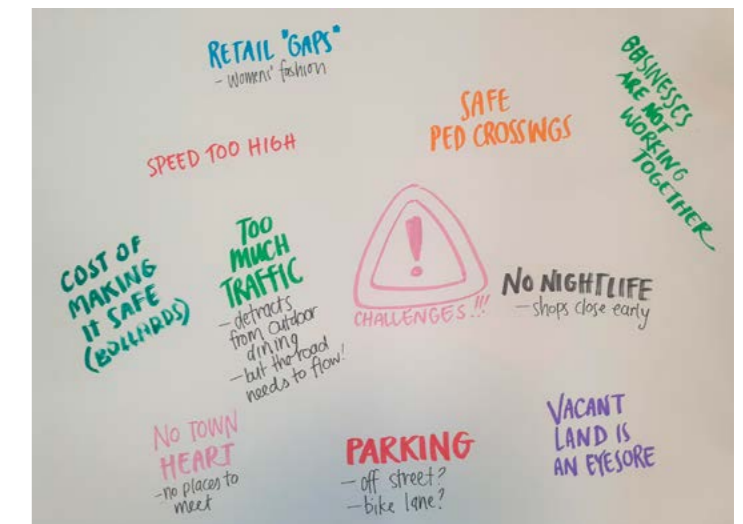 RETAIL "GAPS"
- womens' fashion
SAFE
PED CROSSINGS
BUSINESSES
ARE NOT
WORKING
TOGETHER
SPEED TOO HIGH
COST OF
MAKING
IT SAFE
(BOLLARDS)
TOO
MUCH
TRAFFIC
- detracts
from outdoor
dining
- but the road
needs to flow!
!
CHALLENGES!!!
NO NIGHTLIFE
- shops close early
NO TOWN
HEART
- no places to
meet
PARKING
- off street?
- bike lane?
VACANT
LAND IS
AN EYESORE